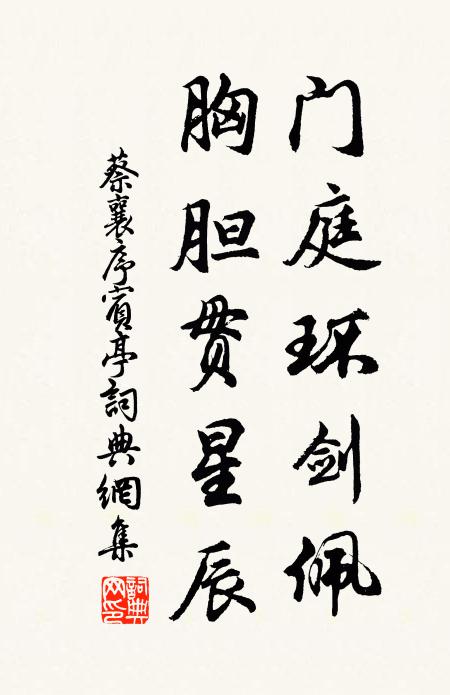 门庭环剑佩
胸胆贯星辰
蔡襄序宾亭詞典網集
詞典网印